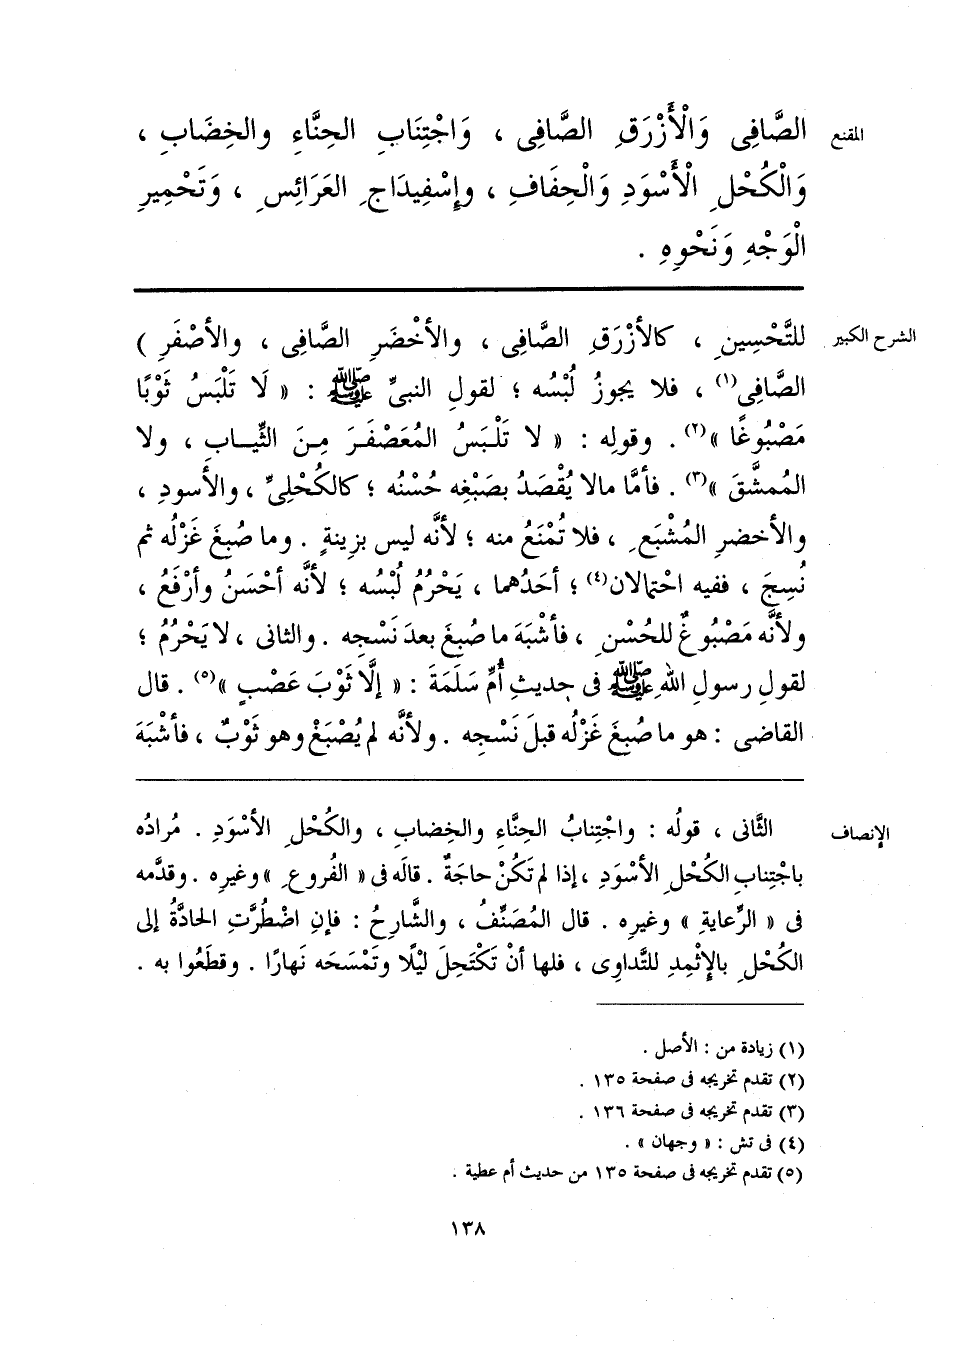 المقنع
الصَّافِى وَالْأَزْرَقِ الصَّافِى ، وَاجْتِنَابِ الحِنَّاءِ والخِضَابِ ،
وَالْكُحْلِ الْأَسْوَدِ وَالْحِفَافِ ، وإِسْفِيدَاجِ العَرَائِسِ ، وَتَحْمِيرِ
الْوَجْهِ وَنَحْوِهِ .
الشرح الكبير
للتَّحْسِينِ ، كالأزْرَقِ الصَّافِى ، والأخْضَرِ الصَّافِى ، والأصْفَرِ )
الصَّافِى(١) ، فلا يجوزُ لُبْسُه ؛ لقولِ النبىِّ ﷺ : « لَا تَلْبَسُ ثَوْبًا
مَصْبُوغًا »(٢) . وقولِه : « لا تَلْبَسُ المُعَصْفَرَ مِنَ الثِّيابِ ، ولا
المُمشَّقَ »(٣) . فأمَّا مالا يُقْصَدُ بصَبْغِه حُسْنُه ؛ كالكُحْلِىِّ ، والأسودِ ،
والأخضرِ المُشْبَعِ ، فلا تُمْنَعُ منه ؛ لأنَّه ليس بزِينةٍ . وما صُبِغَ غَزْلُه ثم
نُسِجَ ، ففيه احْتمالان(٤) ؛ أحَدُهما ، يَحْرُمُ لُبْسُه ؛ لأنَّه أحْسَنُ وأرْفَعُ ،
ولأنَّه مَصْبُوغٌ للحُسْنِ ، فأشْبَهَ ما صُبِغَ بعدَ نَسْجِه . والثانى ، لا يَحْرُمُ ؛
لقولِ رسولِ اللهِ ﷺ فى حديثِ أُمِّ سَلَمَةَ : « إلَّا ثَوْبَ عَصْبٍ »(٥) . قال
القاضى : هو ما صُبِغَ غَزْلُه قبلَ نَسْجِه . ولأنَّه لم يُصْبَغْ وهو ثَوْبٌ ، فأشْبَهَ
الإنصاف
الثَّانى ، قولُه : واجْتِنابُ الحِنَّاءِ والخِضابِ ، والكُحْلِ الأسْوَدِ . مُرادُه
باجْتِنابِ الكُحْلِ الأسْوَدِ ، إذا لم تَكُنْ حاجَةٌ . قالَه فى « الفُروعِ » وغيرِه . وقدَّمه
فى « الرِّعايةِ » وغيرِه . قال المُصَنِّفُ ، والشَّارِحُ : فإنِ اضْطُرَّتِ الحادَّةُ إلى
الكُحْلِ بالإِثْمِدِ للتَّداوِى ، فلها أنْ تَكْتَحِلَ ليْلًا وتَمْسَحَه نَهارًا . وقطَعُوا به .
(١) زيادة من : الأصل .
(٢) تقدم تخريجه فى صفحة ١٣٥ .
(٣) تقدم تخريجه فى صفحة ١٣٦ .
(٤) فى تش : « وجهان » .
(٥) تقدم تخريجه فى صفحة ١٣٥ من حديث أم عطية .
١٣٨